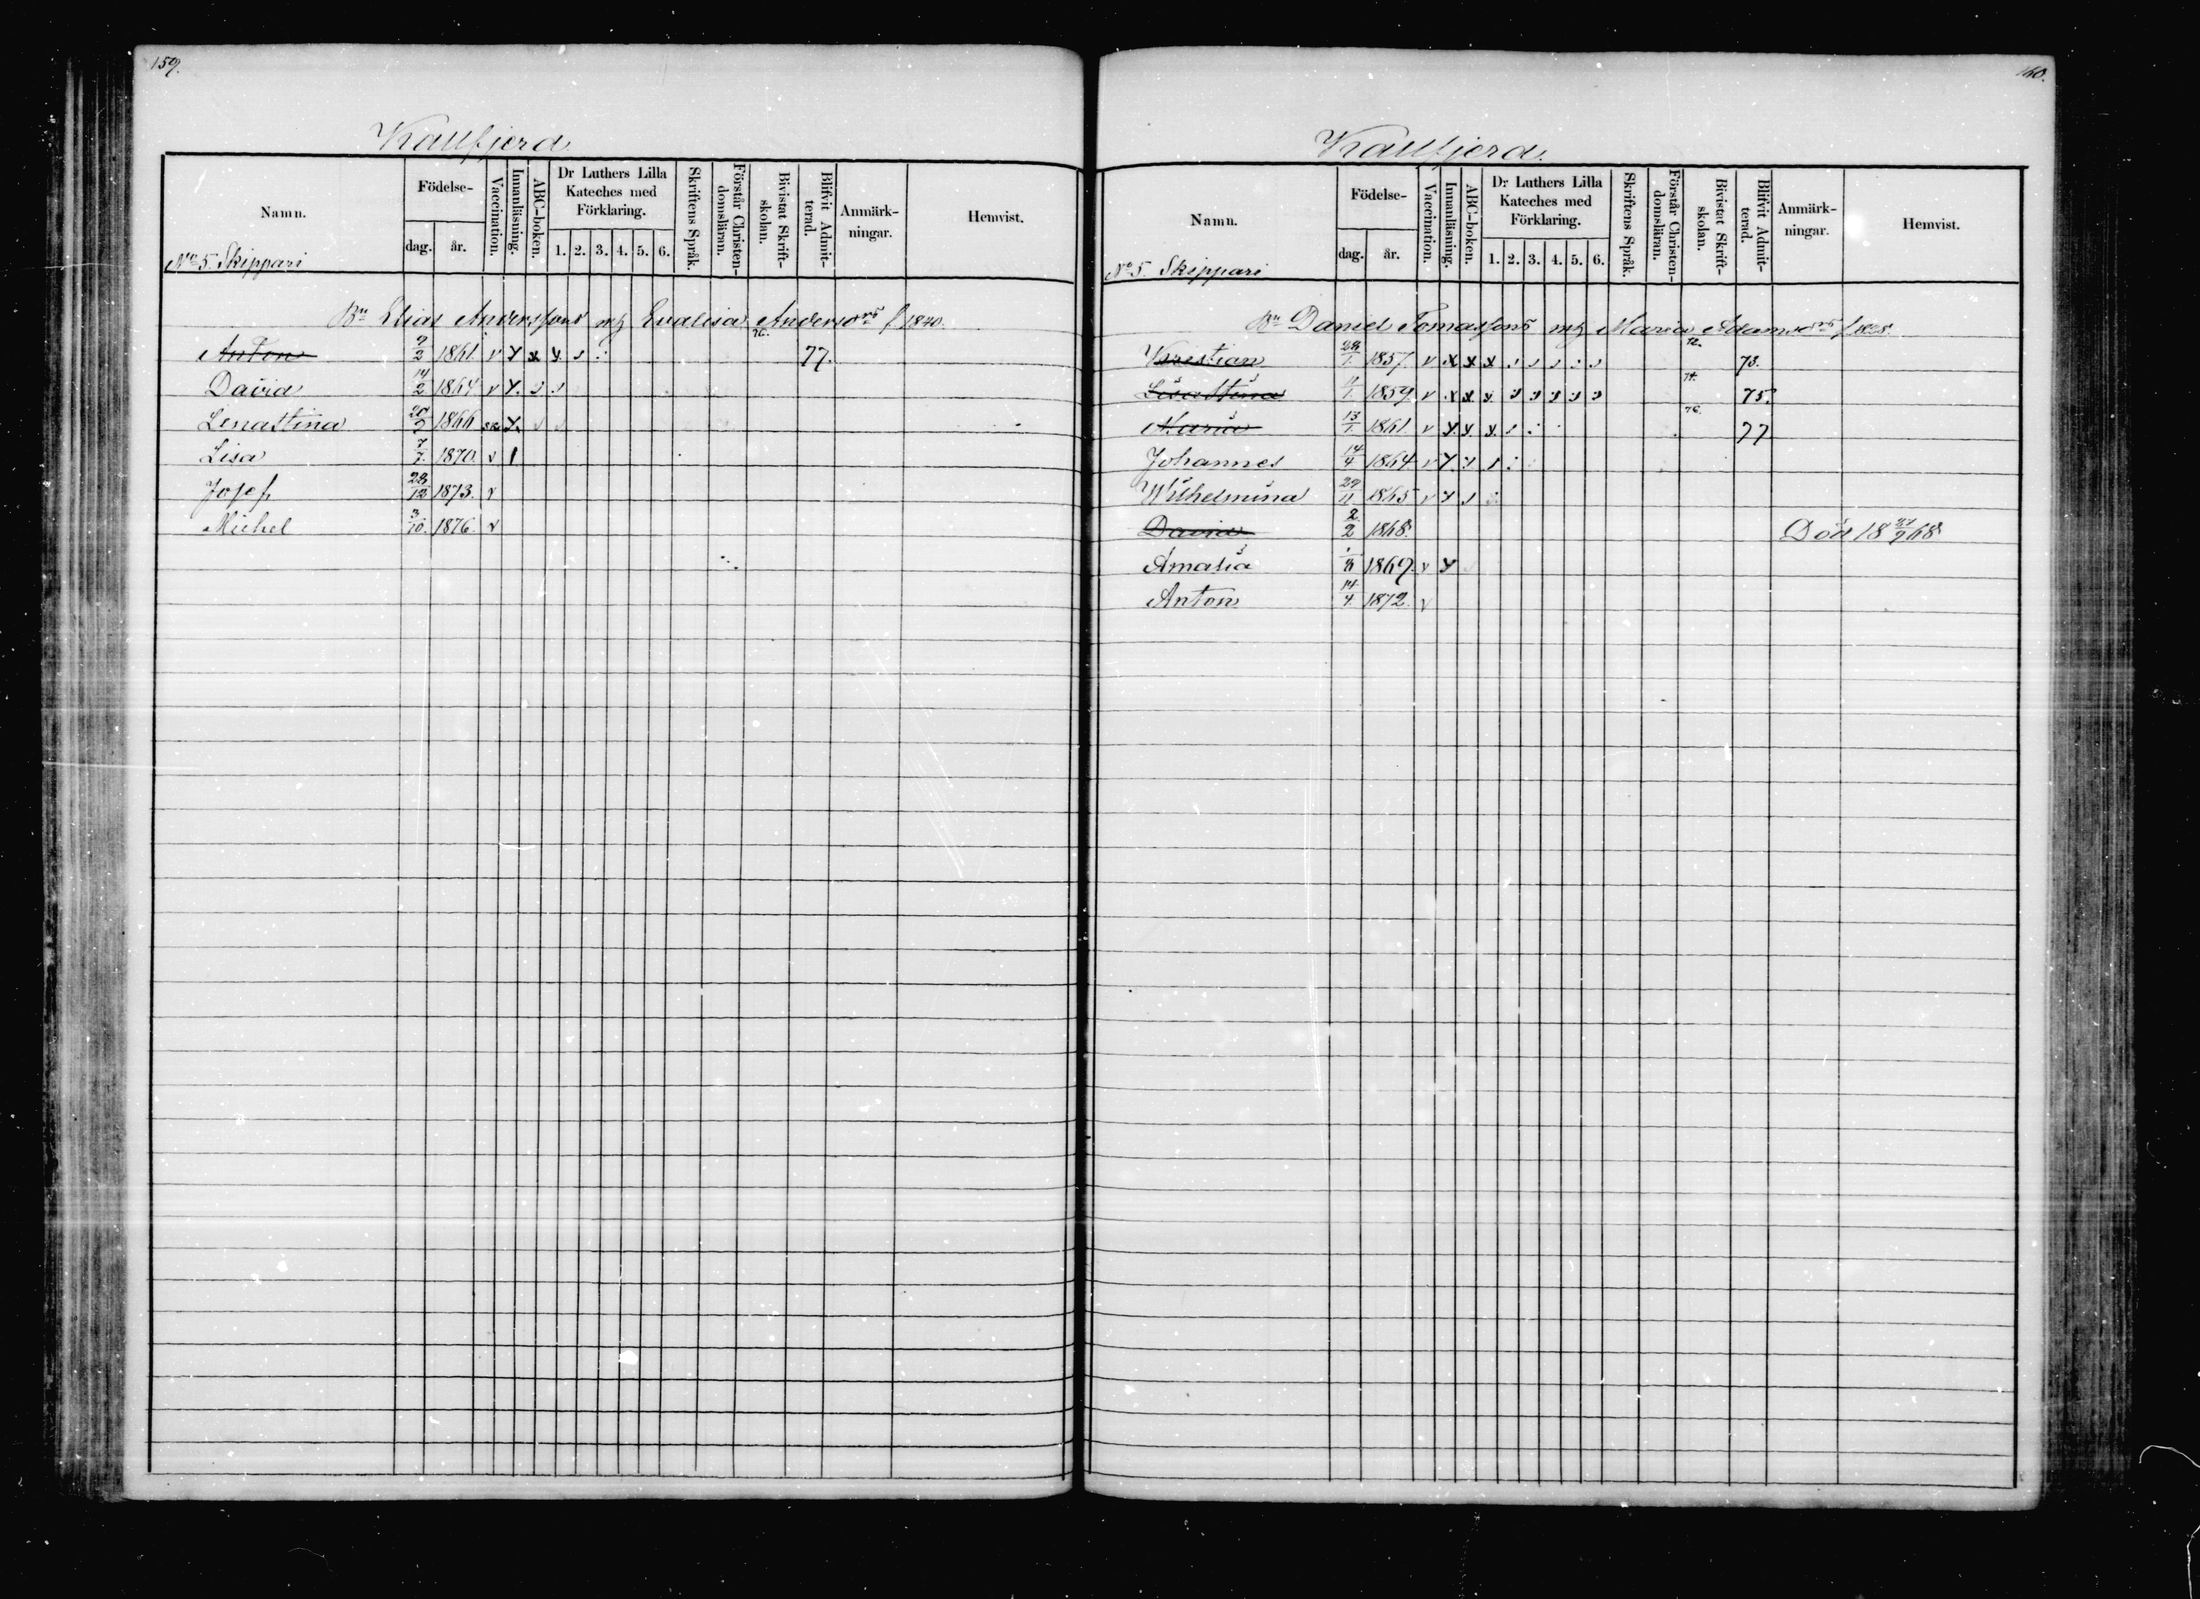 159.
Kallfjerd
Namn.
Födelse-
dag.
år.
Vaccination.
Innanläsning.
ABC-boken.
Dr Luthers Lilla Kateches med Förklaring.
1. 2. 3. 4. 5. 6.
Skriftens Språk.
Förstår Christendomsläran.
Bivistat Skriftskolan.
Blifvit Admitterad.
Anmärkningar.
Hemvist.
No 5. Skippari
Bn Elias Anderssons mh Evalisa Andersdr f 1840.
Anton 9/2 1861. v 76. 77.
David 14/2 1864 v
Lenastina 20/9 1866
Lisa 7/7. 1870. v
Josef 28/12 1873. v
Mickel 3/10. 1876. v
160.
Kallfjerd.
Namn.
Födelse-
dag.
år.
Vaccination.
Innanläsning.
ABC-boken.
Dr Luthers Lilla Kateches med Förklaring.
1. 2. 3. 4. 5. 6.
Skriftens Språk.
Förstår Christendomsläran.
Bivistat Skriftskolan.
Blifvit Admitterad.
Anmärkningar.
Hemvist.
No 5. Skippari
Bn Daniel Tomassons mh Maria Adamsdr f 1828.
Kristian 28/1. 1857. v x x x 72. 73.
Lisa Stina 11/1. 1859 v x x x 74. 75.
Maria 13/1. 1861 v 76. 77
Johannes 14/4 1864 v
Wilhelmina 29/11 1865 v
David 2/2 1868. Död 18 27/9 68
Amalia 1869. v
Anton 14/4. 1872. v